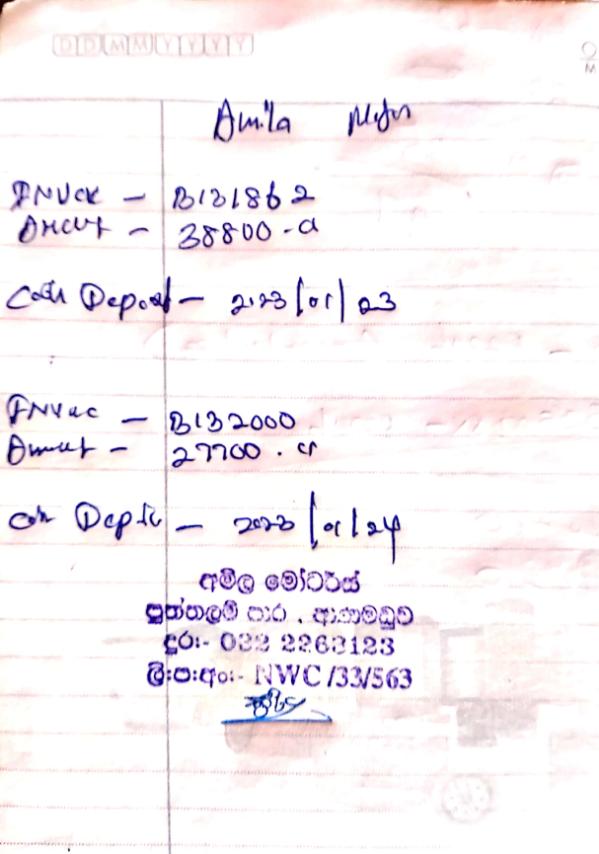 DDMMYYYY
Amila Motors
Invock - B131862
Amout - 38800.00
Cash Deposit - 2023/01/23
Invoc - B132000
Amout - 27700.00
Cash Depsit - 2023/01/24
අමිල මෝටර්ස්
පුත්තලම් පාර , ආණමඩුව
දුර:- 032 2263123
ලි:ප:අං:- NWC/33/563